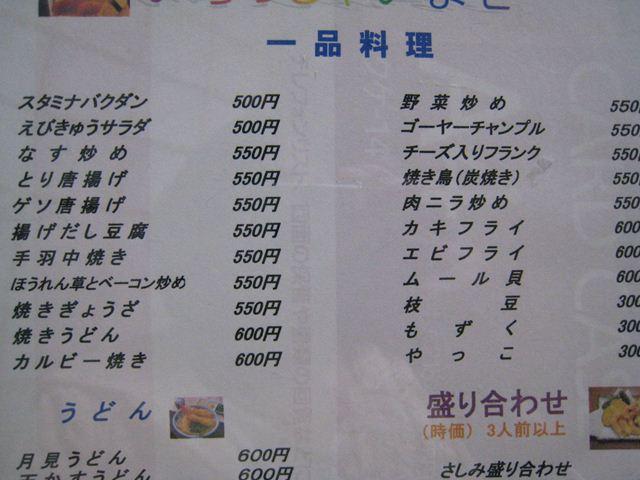 一品料理
スタミナバクダン 500円
えびきゅうサラダ 500円
なす炒め 550円
とり唐揚げ 550円
ゲソ唐揚げ 550円
揚げだし豆腐 550円
手羽中焼き 550円
ほうれん草とベーコン炒め 550円
焼きぎょうざ 550円
焼きうどん 600円
カルビー焼き 600円
うどん
月見うどん 600円
天かすうどん 600円
野菜炒め 550
ゴーヤーチャンプル 550
チーズ入りフランク 550
焼き鳥(炭焼き) 550
肉ニラ炒め 550
カキフライ 600
エビフライ 600
ムール貝 600
枝豆 300
もずく 300
やっこ 300
盛り合わせ
(時価) 3人前以上
さしみ盛り合わせ